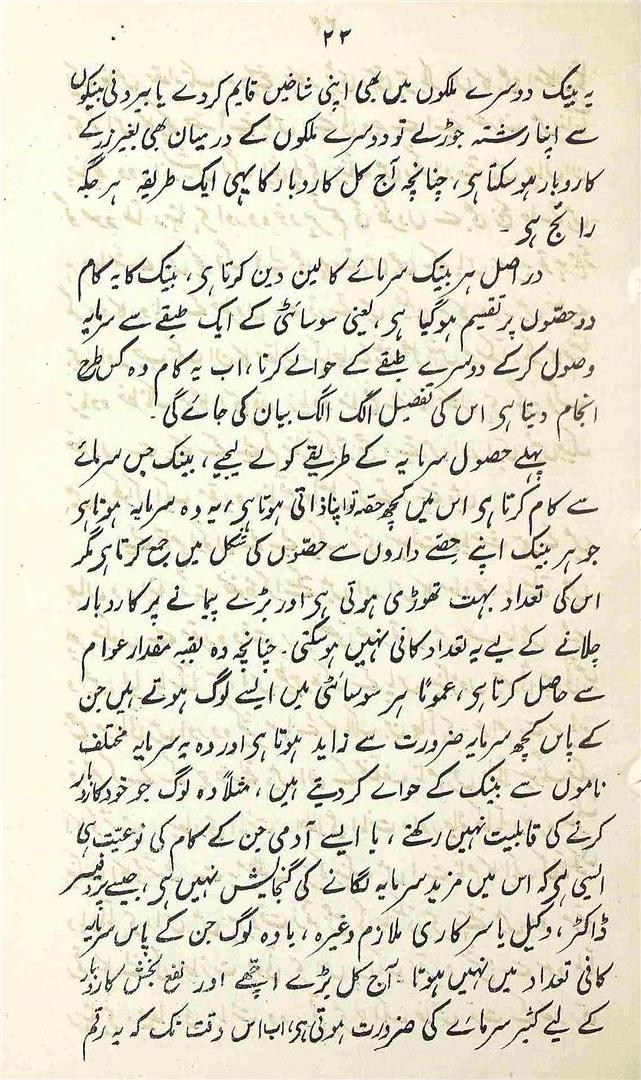 ۲۳
یہ بینک دوسرے ملکوں میں بھی اپنی شاخیں قایم کردے یا بیرونی بینکوں
سے اپنا رشتہ جوڑلے تو دوسرے ملکوں کے درمیان بھی بغیر زر کے
کاروبار ہوسکتا ہی، چنانچہ آج کل کاروبار کا یہی ایک طریقہ ہر جگہ
رائج ہی ۔
در اصل ہر بینک سرمائے کا لین دین کرتا ہی، بینک کا یہ کام
دو حصّوں پر تقسیم ہوگیا ہی، یعنی سوسائٹی کے ایک طبقے سے سرمایہ
وصول کرکے دوسرے طبقے کے حوالے کرنا، اب یہ کام وہ کس طرح
انجام دیتا ہی اس کی تفصیل الگ الگ بیان کی جائے گی۔
پہلے حصول سرمایہ کے طریقے کو لے لیجیے، بینک جس سرمائے
سے کام کرتا ہی اس میں کچھ حصّہ تو اپنا ذاتی ہوتا ہی، یہ وہ سرمایہ ہوتا ہی
جو ہر بینک اپنے حصّے داروں سے حصّوں کی شکل میں جمع کرتا ہی مگر
اس کی تعداد بہت تھوڑی ہوتی ہی اور بڑے پیمانے پر کاروبار
چلانے کے لیے یہ تعداد کافی نہیں ہوسکتی۔ چنانچہ وہ بقیہ مقدار عوام
سے حاصل کرتا ہی، عموماً ہر سوسائٹی میں ایسے لوگ ہوتے ہیں جن
کے پاس کچھ سرمایہ ضرورت سے زاید ہوتا ہی اور وہ یہ سرمایہ مختلف
ناموں سے بینک کے حوالے کردیتے ہیں، مثلاً وہ لوگ جو خود کاروبار
کرنے کی قابلیت نہیں رکھتے، یا ایسے آدمی جن کے کام کی نوعیّت ہی
ایسی ہی کہ اس میں مزید سرمایہ لگانے کی گنجایش نہیں ہی، جیسے پروفیسر
ڈاکٹر، وکیل یا سرکاری ملازم وغیرہ، یا وہ لوگ جن کے پاس سرمایہ
کافی تعداد میں نہیں ہوتا۔ آج کل بڑے اچھّے اور نفع بخش کاروبار
کے لیے کثیر سرمائے کی ضرورت ہوتی ہی، اب اس وقت تک کہ یہ رقم